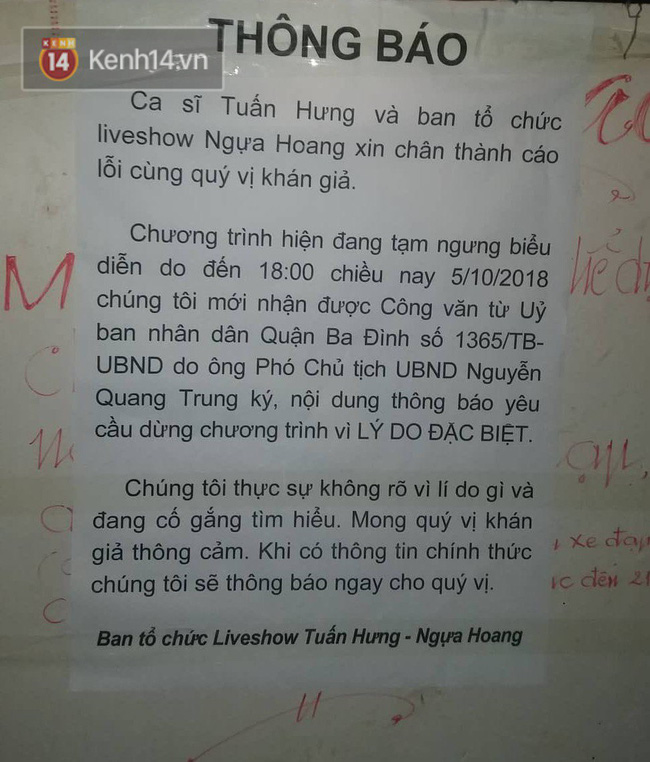 THÔNG BÁO
KENH
14
Kenh14.vn
Ca sĩ Tuấn Hưng và ban tổ chức
liveshow Ngựa Hoang xin chân thành cáo
lỗi cùng quý vị khán giả.
Chương trình hiện đang tạm ngưng biểu
diễn do đến 18:00 chiều nay 5/10/2018
chúng tôi mới nhận được Công văn từ Uỷ
ban nhân dân Quận Ba Đình số 1365/TB-
UBND do ông Phó Chủ tịch UBND Nguyễn
Quang Trung ký, nội dung thông báo yêu
cầu dừng chương trình vì LÝ DO ĐẶC BIỆT.
Chúng tôi thực sự không rõ vì lí do gì và
đang cố gắng tìm hiểu. Mong quý vị khán
giả thông cảm. Khi có thông tin chính thức
chúng tôi sẽ thông báo ngay cho quý vị.
Ban tổ chức Liveshow Tuấn Hưng - Ngựa Hoang
M
xe đạp
đến 21